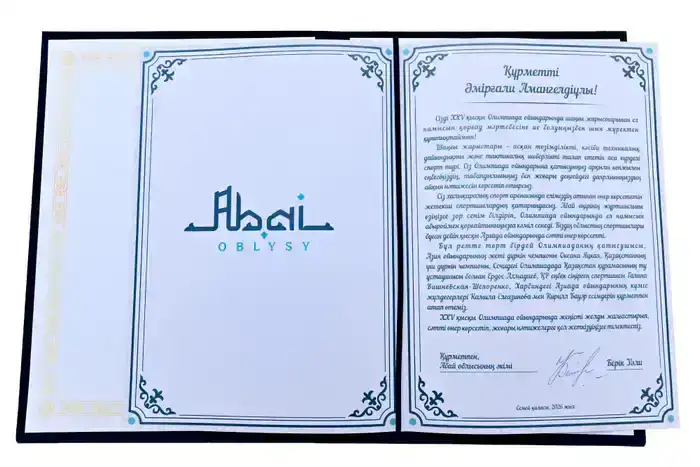 Abai
OBLYSY
Құрметті
Әмірғали Амангелдіұлы!
Сізді XXV қысқы Олимпиада ойындарында шаңғы жарыстарынан ел
намысын қорғау мәртебесіне ие болуыңызбен шын жүректен
құттықтаймын!
Шаңғы жарыстары – асқан төзімділікті, кәсіби техникалық
дайындықты және тактикалық шеберлікті талап ететін аса күрделі
спорт түрі. Сіз Олимпиада ойындарына қатысуыңыз арқылы көпжылғы
еңбегіңіздің, табандылығыңыз бен жоғары деңгейдегі даярлығыңыздың
айқын нәтижесін көрсетіп отырсыз.
Сіз халықаралық спорт аренасында еліміздің атынан өнер көрсететін
жетекші спортшылардың қатарындасыз. Абай өңірінің жұртшылығы
өзіңізге зор сенім білдіріп, Олимпиада ойындарында ел намысын
абыроймен қорғайтыныңызға кәміл сенеді. Біздің облыстың спортшылары
бұған дейін қысқы Азиада ойындарында сәтті өнер көрсетті.
Бұл ретте төрт бірдей Олимпиаданың қатысушысы,
Азия ойындарының жеті дүркін чемпионы Оксана Яцкая, Қазақстанның
үш дүркін чемпионы, Сочидегі Олимпиадада Қазақстан құрамасының ту
ұстаушысы болған Ердос Ахмадиев, ҚР еңбек сіңірген спортшысы Галина
Вишневская-Шепоренко, Харбиндегі Азиада ойындарының күміс
жүлдегерлері Камила Елгазинова мен Кирилл Бауэр есімдерін құрметпен
атап өтеміз.
XXV қысқы Олимпиада ойындарында жеңісті жолды жалғастырып,
сәтті өнер көрсетіп, жоғары нәтижелерге қол жеткізуіңізге тілектеспіз.
Құрметпен,
Абай облысының әкімі Берік Уәли
Семей қаласы, 2026 жыл